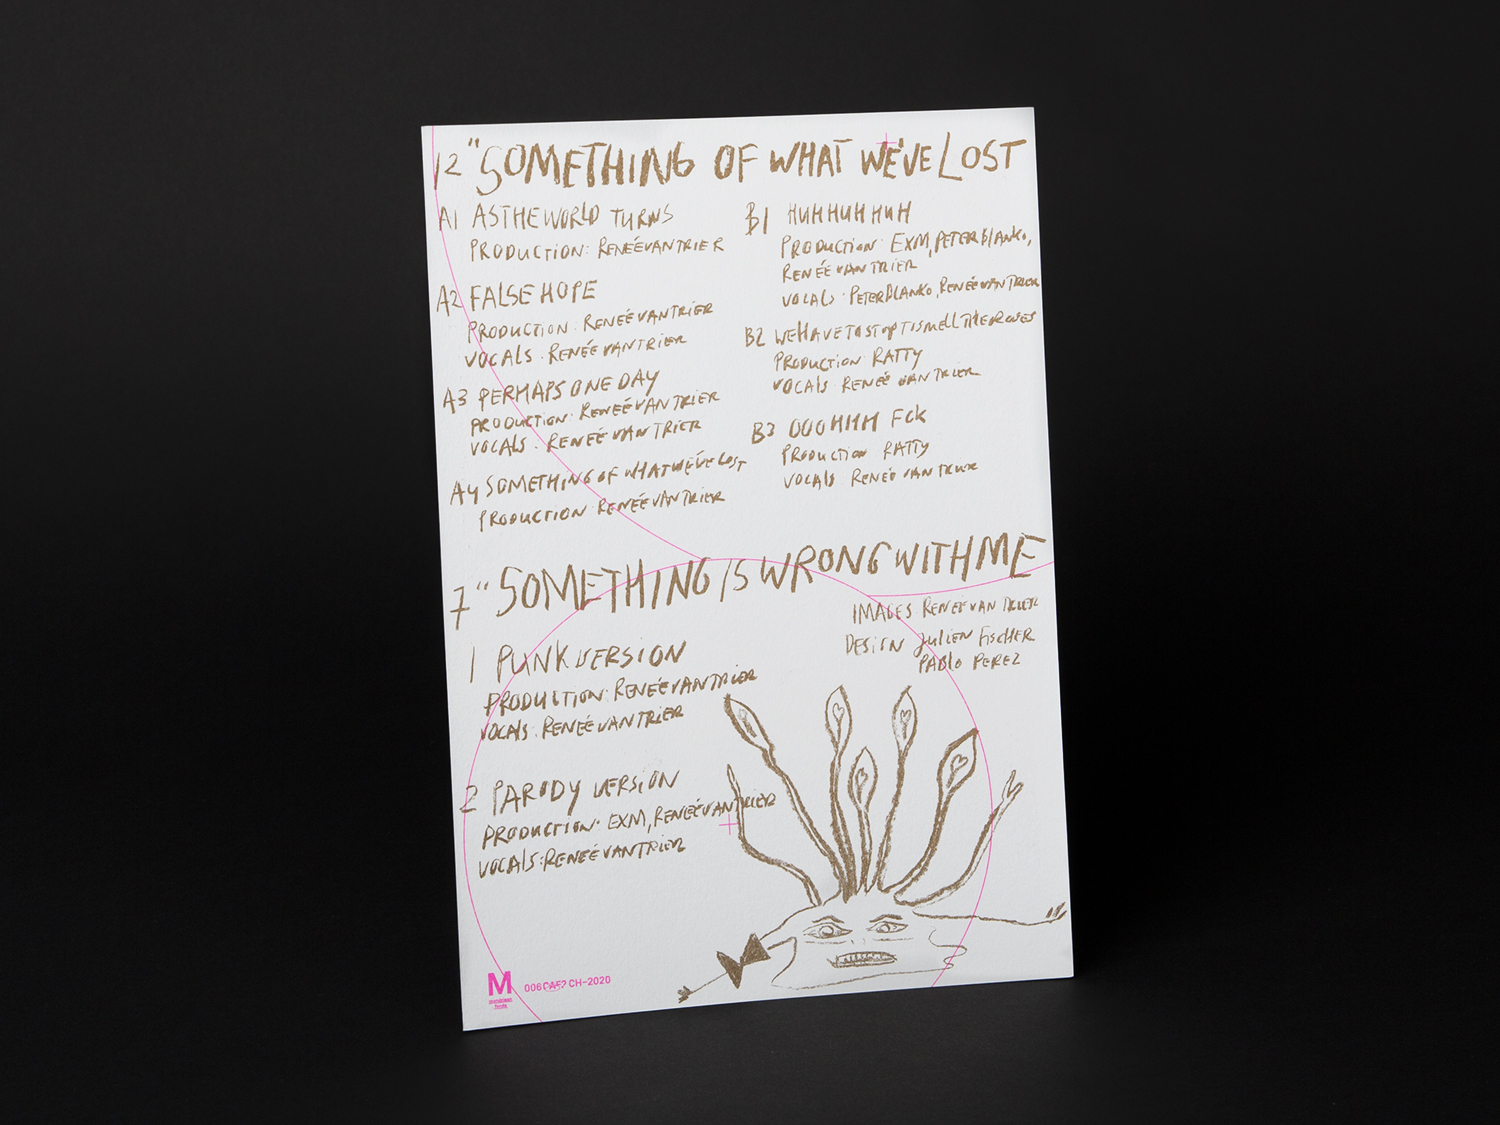 12" SOMETHING OF WHAT WE'VE LOST
A1 AS THE WORLD TURNS
PRODUCTION: RENEÉ VAN TRIER
A2 FALSE HOPE
PRODUCTION: RENEÉ VAN TRIER
VOCALS: RENEÉ VAN TRIER
A3 PERHAPS ONE DAY
PRODUCTION: RENEÉ VAN TRIER
VOCALS: RENEÉ VAN TRIER
A4 SOMETHING OF WHAT WE'VE LOST
PRODUCTION: RENEÉ VAN TRIER
B1 HUH HUH HUH
PRODUCTION: EXM, PETER BLANKO,
RENEÉ VAN TRIER
VOCALS: PETER BLANKO, RENEÉ VAN TRIER
B2 WE HAVE TO STOP TI SMELL THE ROSES
PRODUCTION RATTY
VOCALS RENEÉ VAN TRIER
B3 OOOHHH FCK
PRODUCTION RATTY
VOCALS RENEÉ VAN TRIER
7" SOMETHING IS WRONG WITH ME
IMAGES RENEÉ VAN TRIER
DESIGN JULIEN FISCHER
PABLO PEREZ
1 PUNK VERSION
PRODUCTION: RENEÉ VAN TRIER
VOCALS: RENEÉ VAN TRIER
2 PARODY VERSION
PRODUCTION: EXM, RENEÉ VAN TRIER
VOCALS: RENEÉ VAN TRIER
M
006 CH–2020